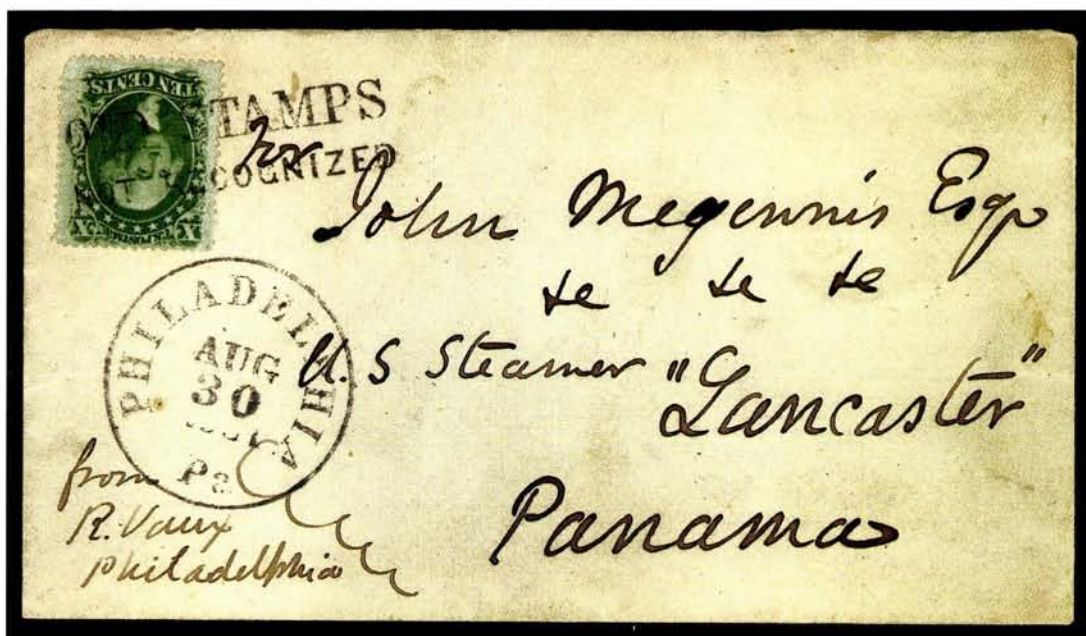 TEN CENTS
X X
TAMPS
COGNIZED
For
John Megennis Esqr
&c &c &c
U. S Steamer "Lancaster"
Panama
PHILADELPHIA
AUG
30
Pa
from
R. Vaux
Philadelphia